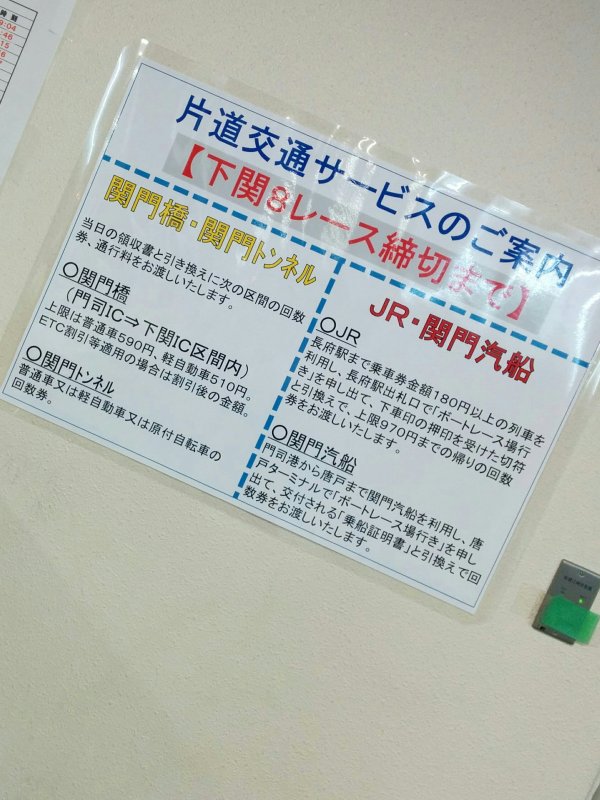 時刻
9:04
46
15
片道交通サービスのご案内
【下関8レース締切まで】
関門橋・関門トンネル
当日の領収書と引き換えに次の区間の回数
券、通行料をお渡しいたします。
○関門橋
(門司IC⇒下関IC区間内)
上限は普通車590円、軽自動車510円。
ETC割引等適用の場合は割引後の金額。
○関門トンネル
普通車又は軽自動車又は原付自転車の
回数券。
JR・関門汽船
○JR
長府駅まで乗車券金額180円以上の列車を
利用し、長府駅出札口で「ボートレース場行
き」を申し出て、下車印の押印を受けた切符
と引換えで、上限970円までの帰りの回数
券をお渡しいたします。
○関門汽船
門司港から唐戸まで関門汽船を利用し、唐
戸ターミナルで「ボートレース場行き」を申し
出て、交付される「乗船証明書」と引換えで回
数券をお渡しいたします。